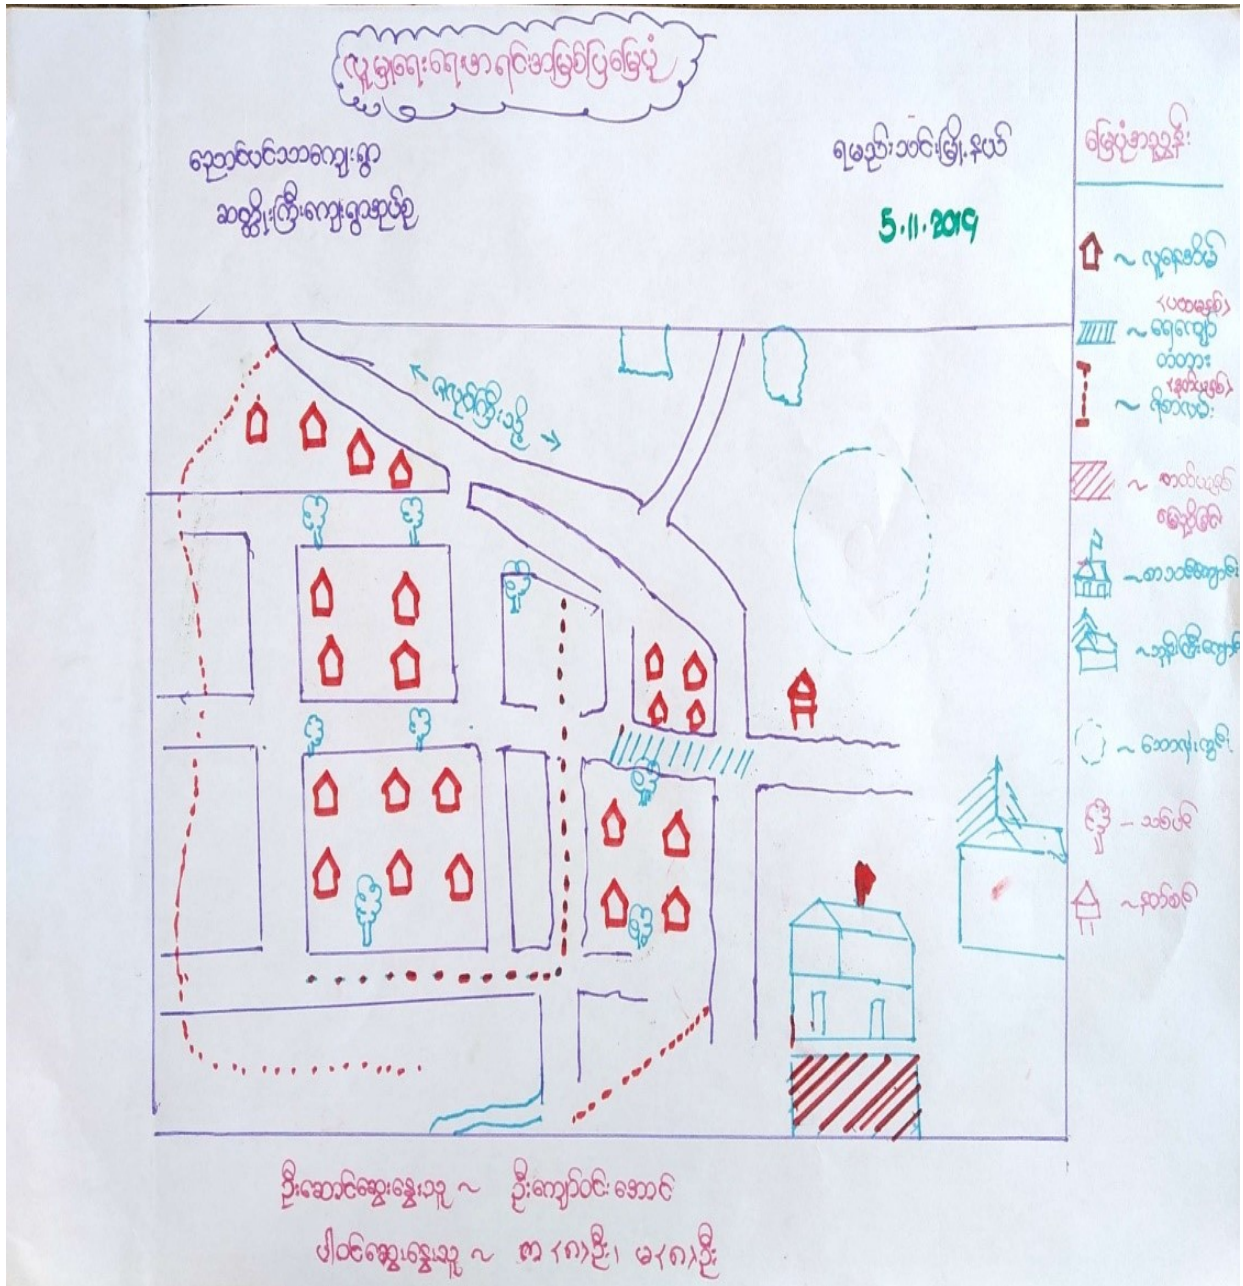 လူမှုရေးရေးဖာရင်းအမြစ်ပြမြေပုံ
ညောင်ပင်သာကျေးရွာ
ဆတ္ထိုးကြီးကျေးရွာအုပ်စု
ရမည်းသင်းမြို့နယ်
5.11.2019
မြေပုံအညွှန်း
~ လူနေအိမ်
<ပထမနှစ်>
~ ရေကျော်
တံတား
~ ရိုးလမ်း
မြေညှိခြင်း
~စာသင်ကျောင်း
~ဘုန်းကြီးကျောင်း
~ ဘောလုံးကွင်း
~ သစ်ပင်
~နတ်စင်
ဦးဆောင်ဆွေးနွေးသူ ~ ဦးကျော်ဝင်းအောင်
ပါဝင်ဆွေးနွေးသူ ~ ကျား <၈>ဦး၊ မ<၈>ဦး